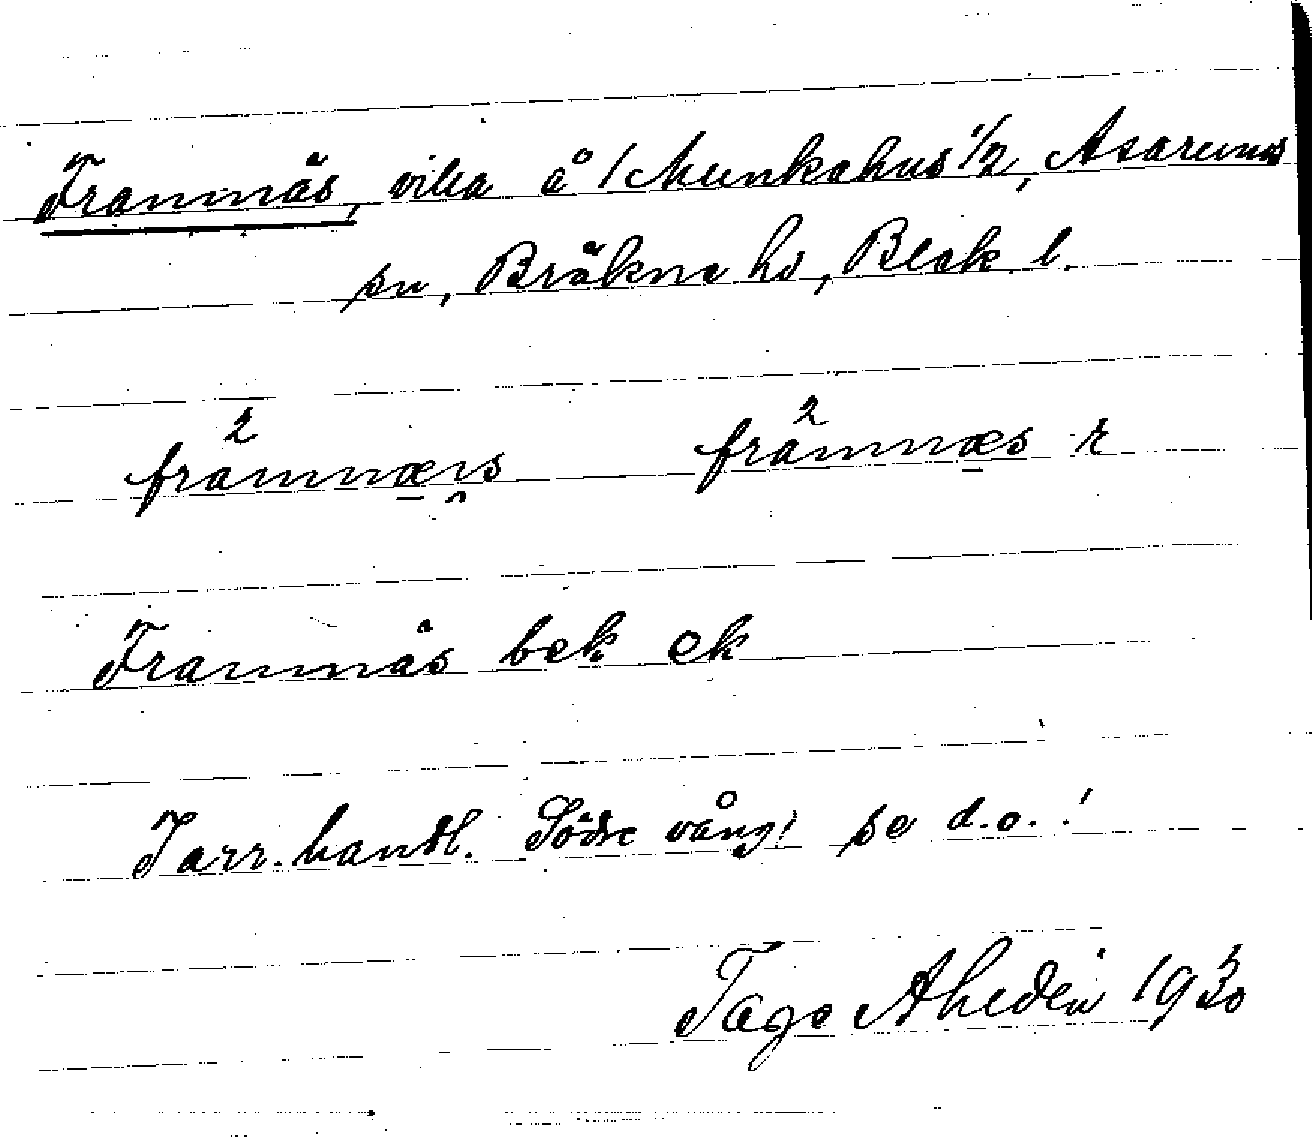 Framnäs, villa å 1 Munkahus 1/2, Asarums
sn, Bräkne hd, Blek. l.
framnæs framnæs r
Framnäs bek ek
Jarr. handl. Södre vång! se d.o.!
Tage Ahedén 1930